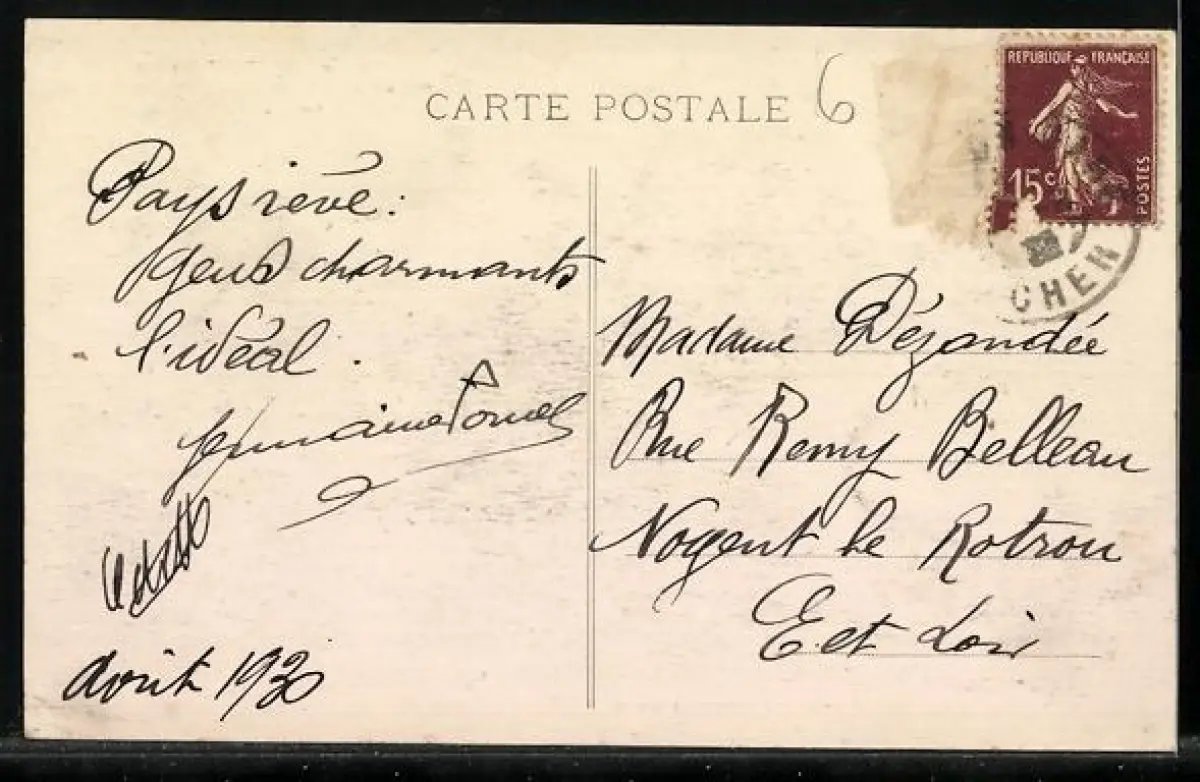 CARTE POSTALE 6
REPUBLIQUE FRANÇAISE
15c
POSTES
CHER
Pays rêvé :
gens charmants
l'idéal.
Germaine
Avril 1930
Madame Dézandée
Rue Remy Belleau
Nogent le Rotrou
E et Loir